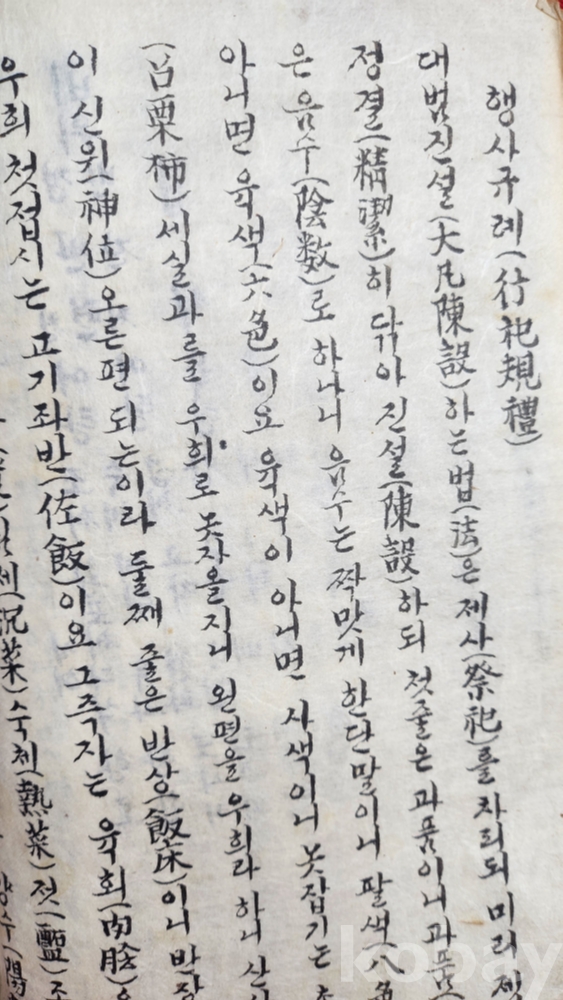 행사규례(行祀規禮)
대범진설(大凡陳設)하는 법(法)은 제사(祭祀)를 차리되 미리
정결(精潔)히 닦아 진설(陳設)하되 첫줄은 과품이니 과품
은 음수(陰数)로 하나니 음수는 짝맛게 한단 말이니 팔색(八色
아니면 육색(六色)이요 육색이 아니면 사색이니 못잡기는
(召栗柿)세실과를 우희로 못자올지니 왼편을 우희라 하니
이 신위(神位)오른편 되는이라 둘째 줄은 반상(飯床)이니 반장
우희 첫접시는 고기좌반(佐飯)이요 그즉자는 육회(肉膾)
(沉菜)숙채(熱菜)젓(醢)
kobay